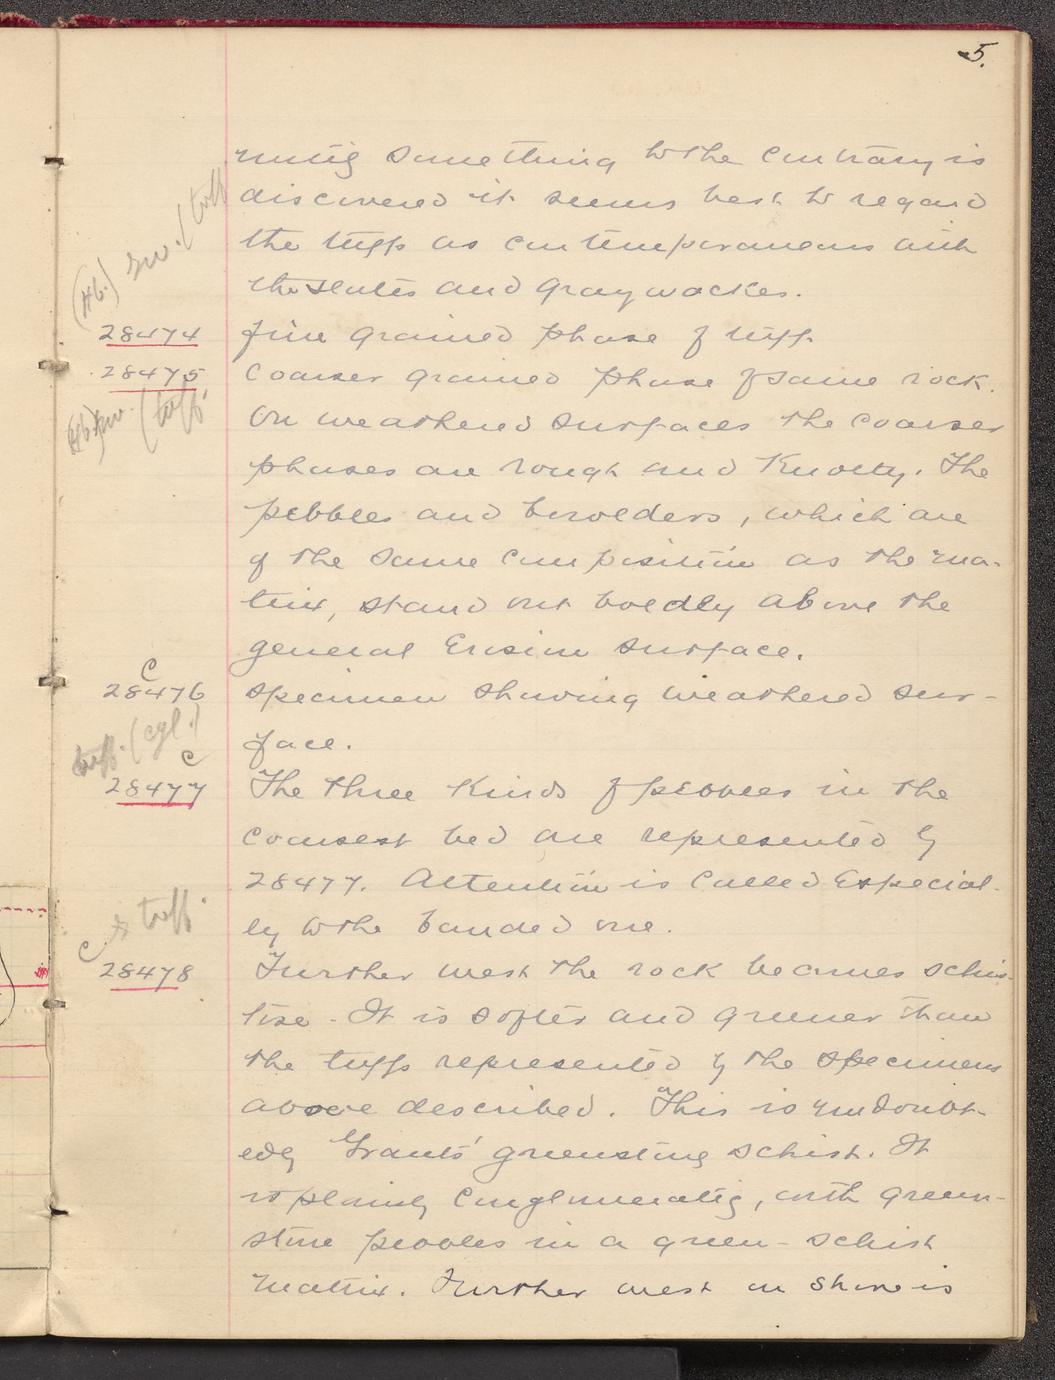 5.
until something to the contrary is
discovered it seems best to regard
the tuffs as contemporaneous with
the slates and graywackes.
(Hb.) gw. (tuff
28474 fine grained phase of tuff.
28475 Coarser grained phase of same rock.
(Hb) gw. (tuff)
On weathered surfaces the coarser
phases are rough and knotty. The
pebbles and bowlders, which are
of the same composition as the ma-
trix, stand out boldly above the
general Erosion surface.
C
28476 Specimen showing weathered sur-
face.
tuff. (cgl.)
C
28477 The three kinds of pebbles in the
coarsest bed are represented by
28477. Attention is called Especial-
ly to the banded one.
tuff
C
28478 Further west the rock becomes schis-
tose. It is softer and greener than
the tuffs represented by the specimens
above described. This is undoubt-
edly Grants' greenstone schist. It
is plainly Conglomeratic, with green-
stone pebbles in a green-schist
matrix. Further west on shore is